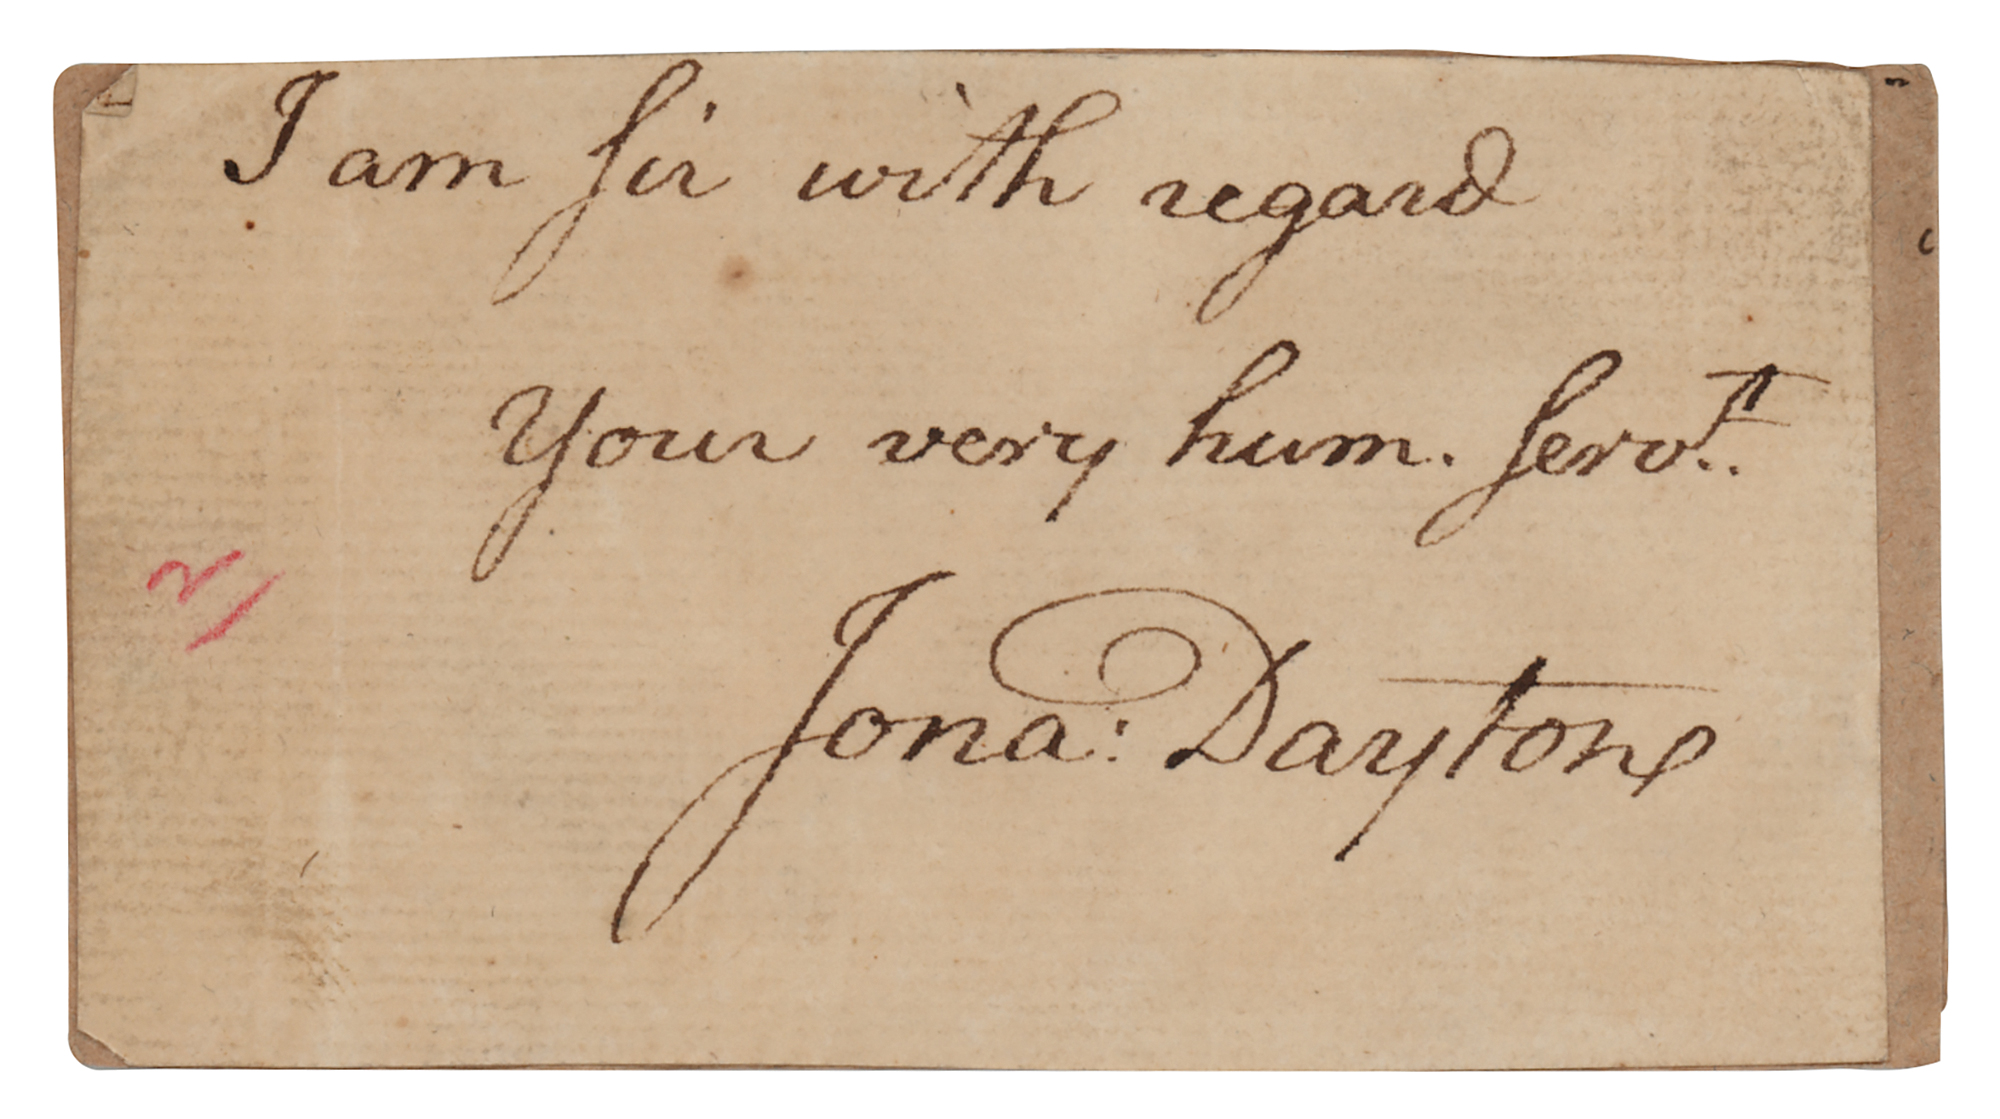 I am Sir with regard
Your very hum. Servt.
Jona: Dayton